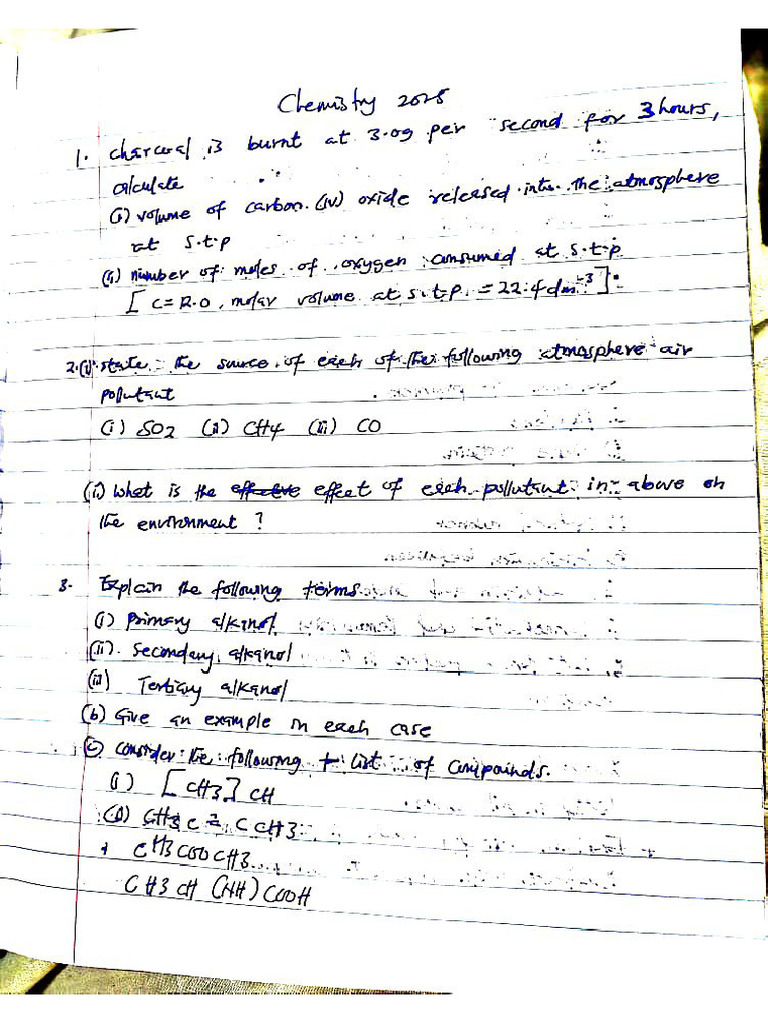 Chemistry 2025
1. Charcoal is burnt at 3.0g per second for 3 hours,
calculate
(i) volume of carbon (iv) oxide released into the atmosphere
at s.t.p
(ii) number of moles of oxygen consumed at s.t.p
[ C = 12.0, molar volume at s.t.p. = 22.4 dm-3 ]
2.(i) state the source of each of the following atmosphere air
pollutant
(i) SO2 (ii) CH4 (iii) CO
(ii) What is the effect of each pollutant in above on
the environment ?
3. Explain the following terms
(i) primary alkanol
(ii). Secondary alkanol
(iii) Tertiary alkanol
(b) Give an example in each case
(c) Consider the following list of compounds.
(i) [CH3] CH
(ii) CH3 C = C CH3
CH3COOCH3
CH3CH (NH) COOH